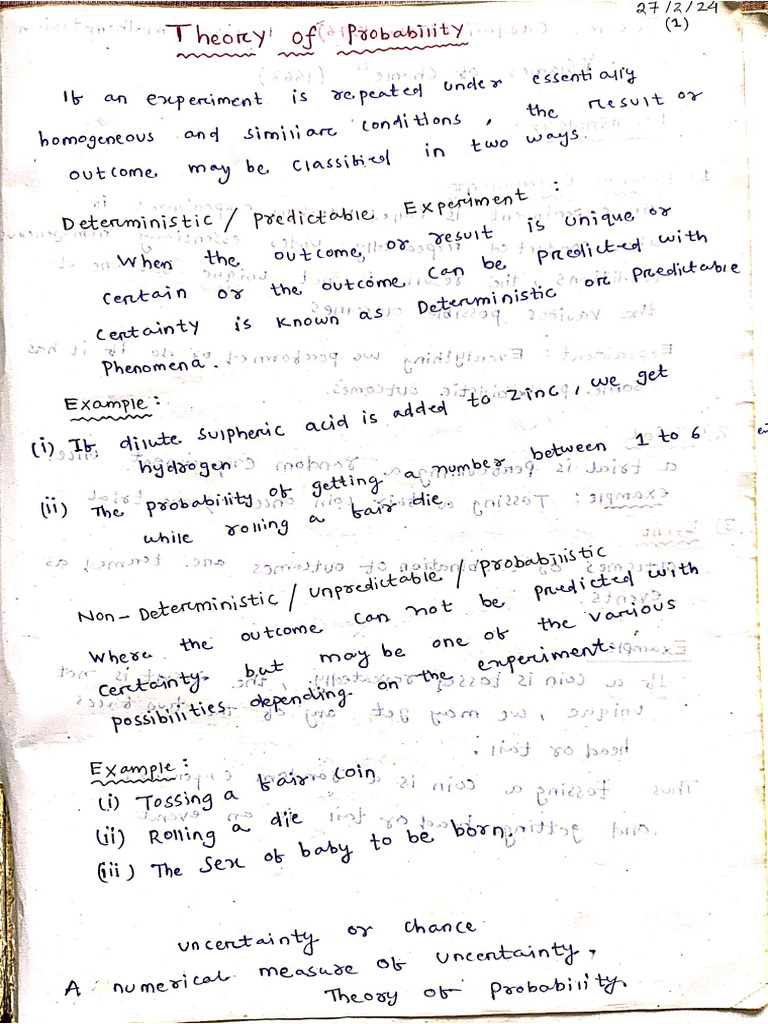 27/2/24
(1)
Theory of Probability
If an experiment is repeated under essentially
homogeneous and similiar conditions, the result or
outcome may be classified in two ways.
Deterministic / Predictable Experiment :
When the outcome or result is unique or
certain or the outcome can be predicted with
certainty is known as Deterministic or predictable
Phenomena.
Example :
(i) If dilute sulpheric acid is added to zinc, we get
hydrogen
(ii) The probability of getting a number between 1 to 6
while rolling a fair die
Non-Deterministic / Unpredictable / probabilistic
Where the outcome can not be predicted with
certainty but may be one of the various
possibilities depending on the experiment.
Example :
(i) Tossing a fair coin
(ii) Rolling a die
(iii) The sex of baby to be born.
uncertainty or chance
A numerical measure of uncertainty,
Theory of probability.